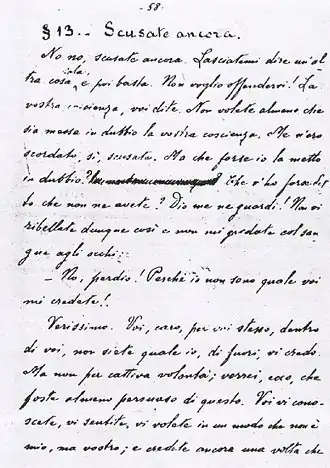 58
§ 13. - Scusate ancora.
No no, scusate ancora. Lasciatemi dire un'al-
tra cosa sola, e poi basta. Non voglio offendervi! La
vostra coscienza, voi dite. Non volete almeno che
sia messa in dubbio la vostra coscienza. Me n'ero
scordato, sì, scusate. Ma che forse io la metto
in dubbio? Che v'ho forse det-
to che non ne avete? Dio me ne guardi! Non vi
ribellate dunque così e non mi gridate col san-
gue agli occhi:
- No, perdio! Perché io non sono quale voi
mi credete!
Verissimo. Voi, caro, per voi stesso, dentro
di voi, non siete quale io, di fuori, vi credo.
Ma non per cattiva volontà; vorrei, ecco, che
foste almeno persuaso di questo. Voi vi cono-
scete, vi sentite, vi volete in un modo che non è
mio, ma vostro; e credete ancora una volta che